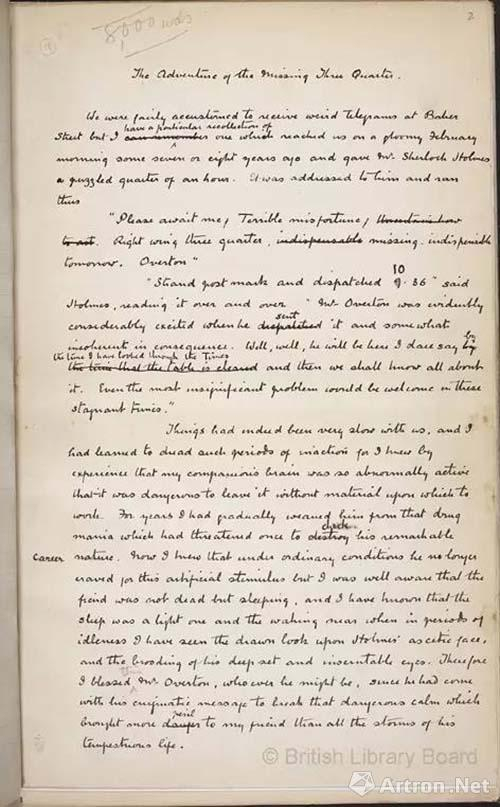 8,000 wds
2
The Adventure of the Missing Three Quarter.
We were fairly accustomed to receive weird telegrams at Baker
have a particular recollection of
Street but I can remember one which reached us on a gloomy February
morning some seven or eight years ago and gave Mr. Sherlock Holmes
a puzzled quarter of an hour. It was addressed to him and ran
thus
"Please await me, Terrible misfortune, Uncertain how
to act. Right wing three quarter, indispensable missing. indispensable
tomorrow. Overton"
10
"Strand post mark and dispatched 9.36" said
Holmes, reading it over and over. "Mr Overton was evidently
sent
considerably excited when he dispatched it and somewhat
incoherent in consequence. Well, well, he will be here I dare say by
the time I have looked through the Times
the time that the table is cleared and then we shall know all about
it. Even the most insignificant problem would be welcome in these
stagnant times."
Things had indeed been very slow with us, and I
had learned to dread such periods of inaction for I knew by
experience that my companion's brain was so abnormally active
that it was dangerous to leave it without material upon which to
work. For years I had gradually weaned him from that drug
check
mania which had threatened once to destroy his remarkable
career
nature. Now I knew that under ordinary conditions he no longer
craved for this artificial stimulus but I was well aware that the
fiend was not dead but sleeping, and I have known that the
sleep was a light one and the waking near when in periods of
idleness I have seen the drawn look upon Holmes' ascetic face,
and the brooding of his deep set and inscrutable eyes. Therefore
this
I blessed Mr. Overton, whoever he might be, since he had come
with his enigmatic message to break that dangerous calm which
peril
brought more danger to my friend than all the storms of his
tempestuous life.
© British Library Board
Artron.Net